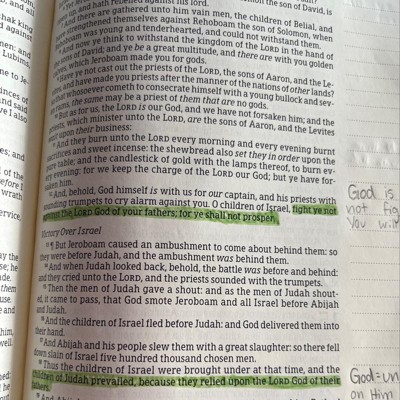 and hath rebelled against his lord.
And there are gathered unto him vain men, the children of Belial, and
strengthened themselves against Rehoboam the son of Solomon, when
was young and tenderhearted, and could not withstand them.
And now ye think to withstand the kingdom of the LORD in the hand of
sons of David; and ye be a great multitude, and there are with you golden
which Jeroboam made you for gods.
Have ye not cast out the priests of the LORD, the sons of Aaron, and the Le-
and have made you priests after the manner of the nations of other lands?
whosoever cometh to consecrate himself with a young bullock and sev-
rams, the same may be a priest of them that are no gods.
But as for us, the LORD is our God, and we have not forsaken him; and the
priests, which minister unto the LORD, are the sons of Aaron, and the Levites
upon their business:
And they burn unto the LORD every morning and every evening burnt
sacrifices and sweet incense: the shewbread also set they in order upon the
pure table; and the candlestick of gold with the lamps thereof, to burn ev-
ery evening: for we keep the charge of the LORD our God; but ye have for-
saken him.
And, behold, God himself is with us for our captain, and his priests with
sounding trumpets to cry alarm against you. O children of Israel, fight ye not
against the LORD God of your fathers; for ye shall not prosper.
Victory Over Israel
¶ But Jeroboam caused an ambushment to come about behind them: so
they were before Judah, and the ambushment was behind them.
And when Judah looked back, behold, the battle was before and behind:
and they cried unto the LORD, and the priests sounded with the trumpets.
Then the men of Judah gave a shout: and as the men of Judah shout-
ed, it came to pass, that God smote Jeroboam and all Israel before Abijah
and Judah.
And the children of Israel fled before Judah: and God delivered them into
their hand.
And Abijah and his people slew them with a great slaughter: so there fell
down slain of Israel five hundred thousand chosen men.
Thus the children of Israel were brought under at that time, and the
children of Judah prevailed, because they relied upon the LORD God of their
fathers.
God is
not fig
You wi
God = un
on Him